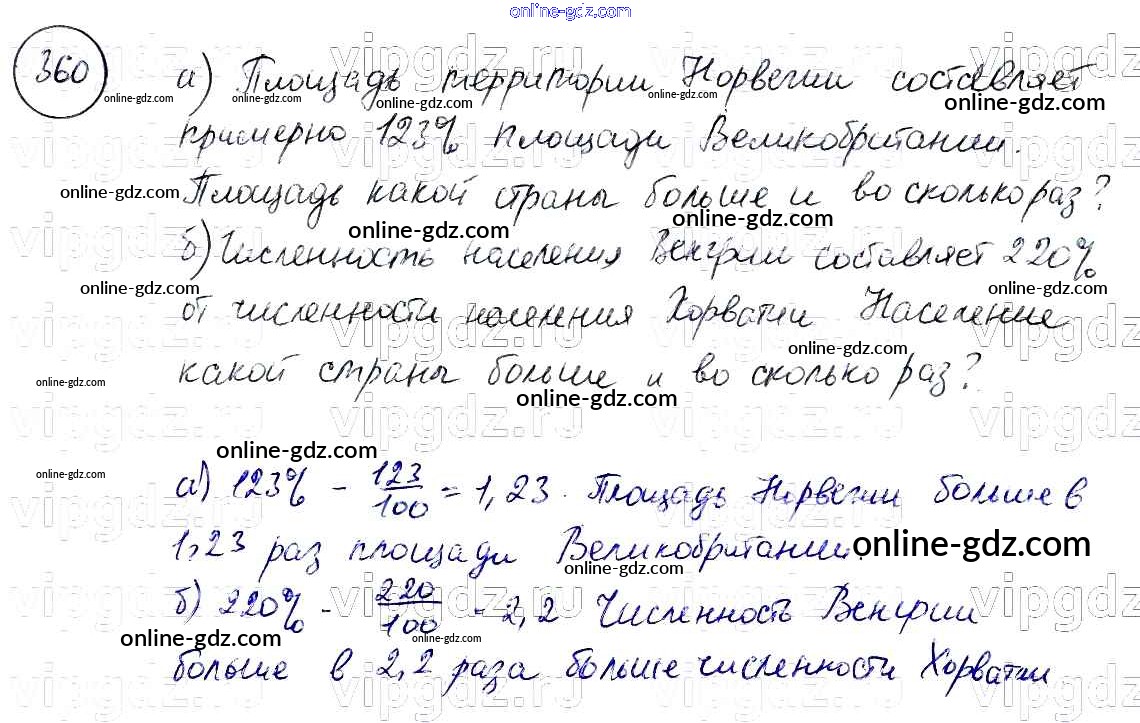 online-gdz.com
360 а) Площадь территории Норвегии составляет
примерно 123% площади Великобритании.
Площадь какой страны больше и во сколько раз?
б) Численность населения Венгрии составляет 220%
от численности населения Хорватии Население
какой страны больше и во сколько раз?
а) 123% - 123/100 = 1,23. Площадь Норвегии больше в
1,23 раз площади Великобритании.
б) 220% - 220/100 - 2,2 Численность Венгрии
больше в 2,2 раза больше численности Хорватии